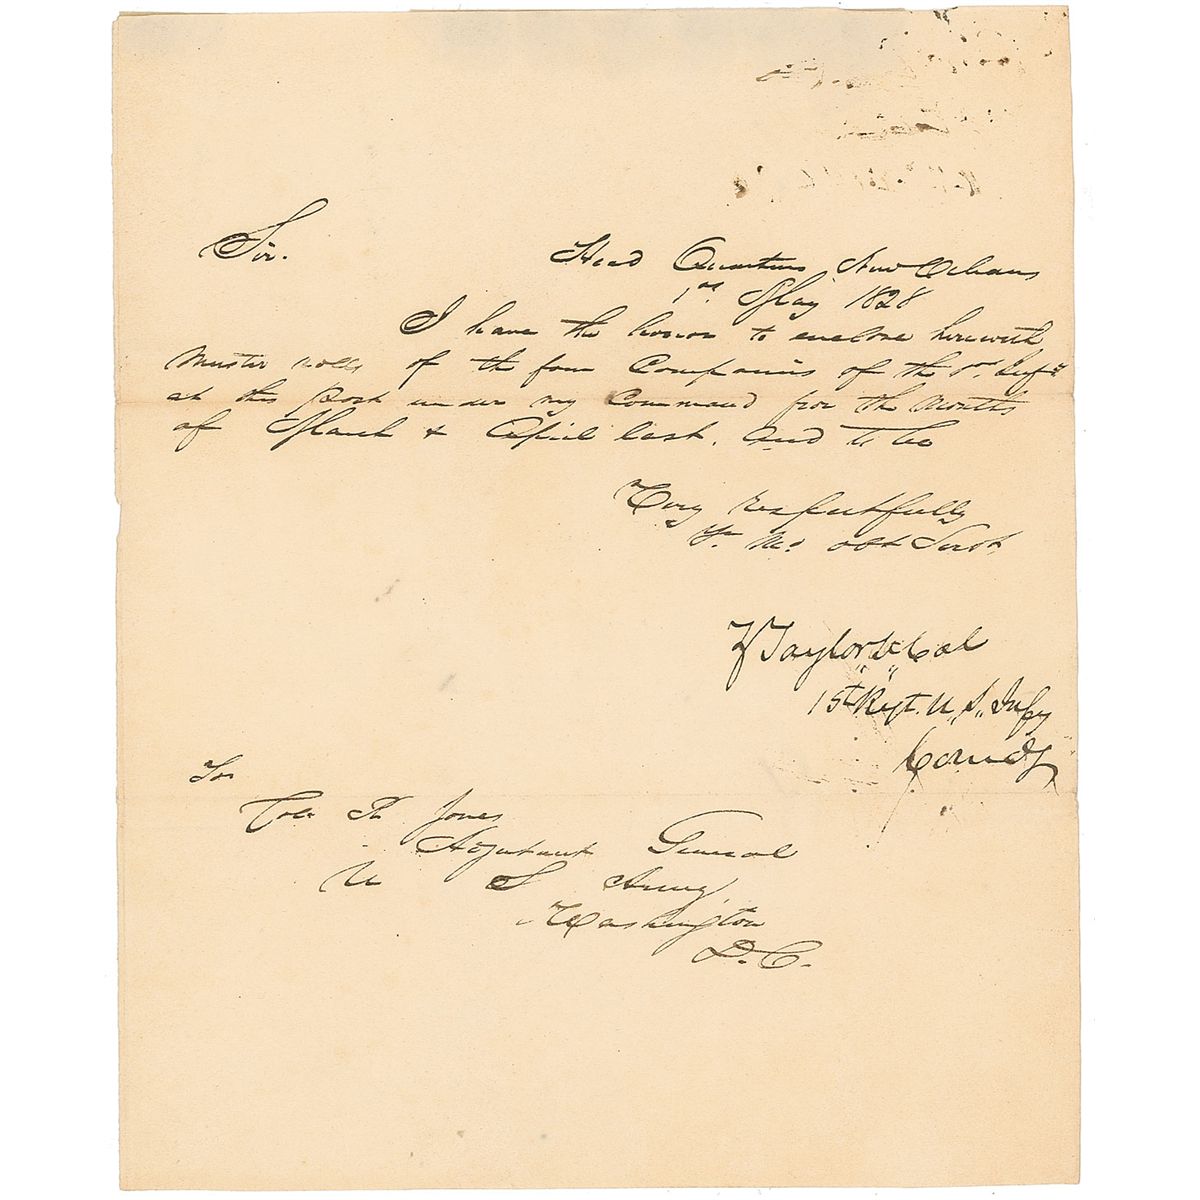 Sir.
Head Quarters New Orleans
1st. May 1828
I have the honor to enclose herewith
Muster rolls of the four Companies of the 1st. Infy
at this Post under my Command for the Months
of March & April last. And to be
Very respectfully
Yr. Mo obt Servt
Z Taylor Lt Col
1st Regt. U,, S,, Infy
Comdg
To
Col. R. Jones
Adjutant General
U S Army
Washington
D. C.